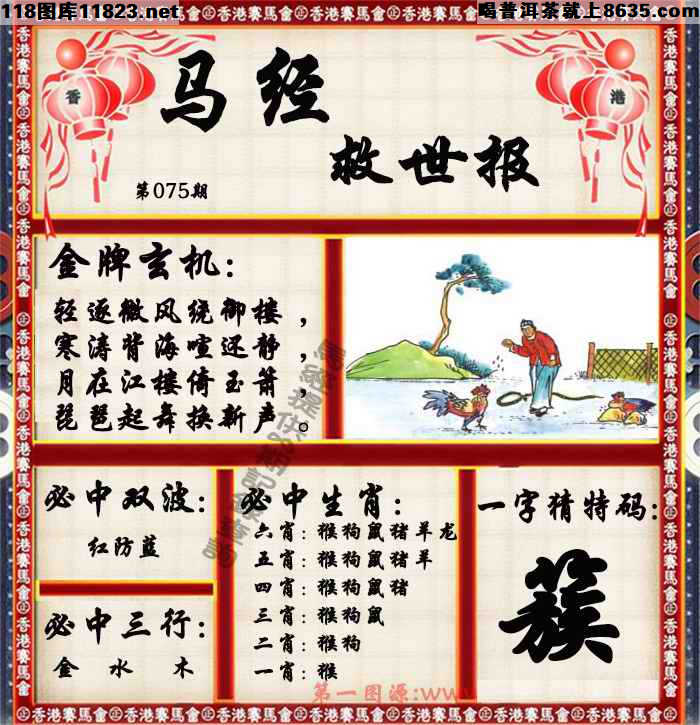 118图库11823.net
喝普洱茶就上8635.com
香港賽馬會
香
港
马经
救世报
第075期
金牌玄机：
轻逐微风绕御楼，
寒涛背海喧还静，
月在江楼倚玉箫，
琵琶起舞换新声。
必中双波：
红防蓝
必中三行：
金 水 木
必中生肖：
六肖：猴狗鼠猪羊龙
五肖：猴狗鼠猪羊
四肖：猴狗鼠猪
三肖：猴狗鼠
二肖：猴狗
一肖：猴
一字猜特码：
簇
第一图源:www